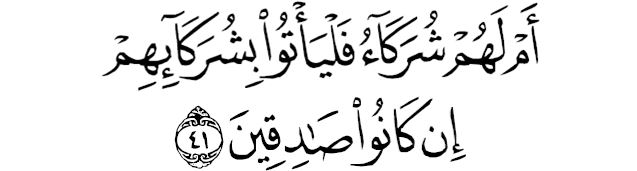 أَمْ لَهُمْ شُرَكَآءُ فَلْيَأْتُوا۟ بِشُرَكَآئِهِمْ
إِن كَانُوا۟ صَٰدِقِينَ ٤١